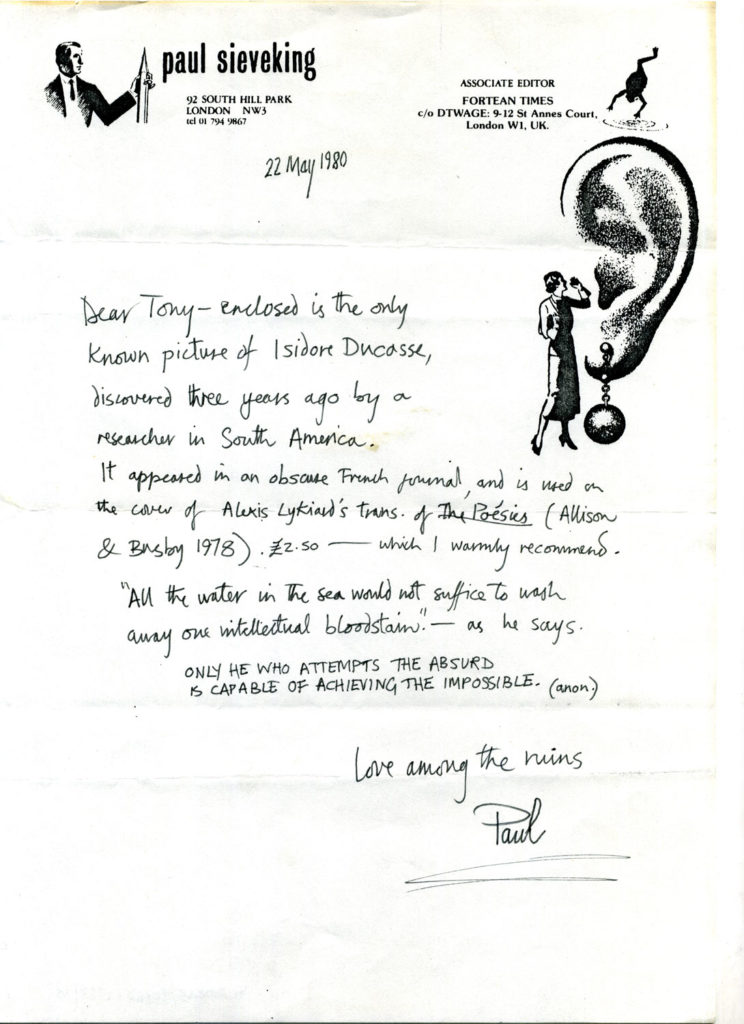 paul sieveking
92 SOUTH HILL PARK
LONDON NW3
tel 01 794 9867
ASSOCIATE EDITOR
FORTEAN TIMES
c/o DTWAGE: 9-12 St Annes Court,
London W1, UK.
22 May 1980
Dear Tony – enclosed is the only
known picture of Isidore Ducasse,
discovered three years ago by a
researcher in South America.
It appeared in an obscure French journal, and is used on
the cover of Alexis Lykiard's trans. of The Poésies (Allison
& Busby 1978). £2.50 — which I warmly recommend.
"All the water in the sea would not suffice to wash
away one intellectual bloodstain." — as he says.
ONLY HE WHO ATTEMPTS THE ABSURD
IS CAPABLE OF ACHIEVING THE IMPOSSIBLE. (anon.)
Love among the ruins
Paul